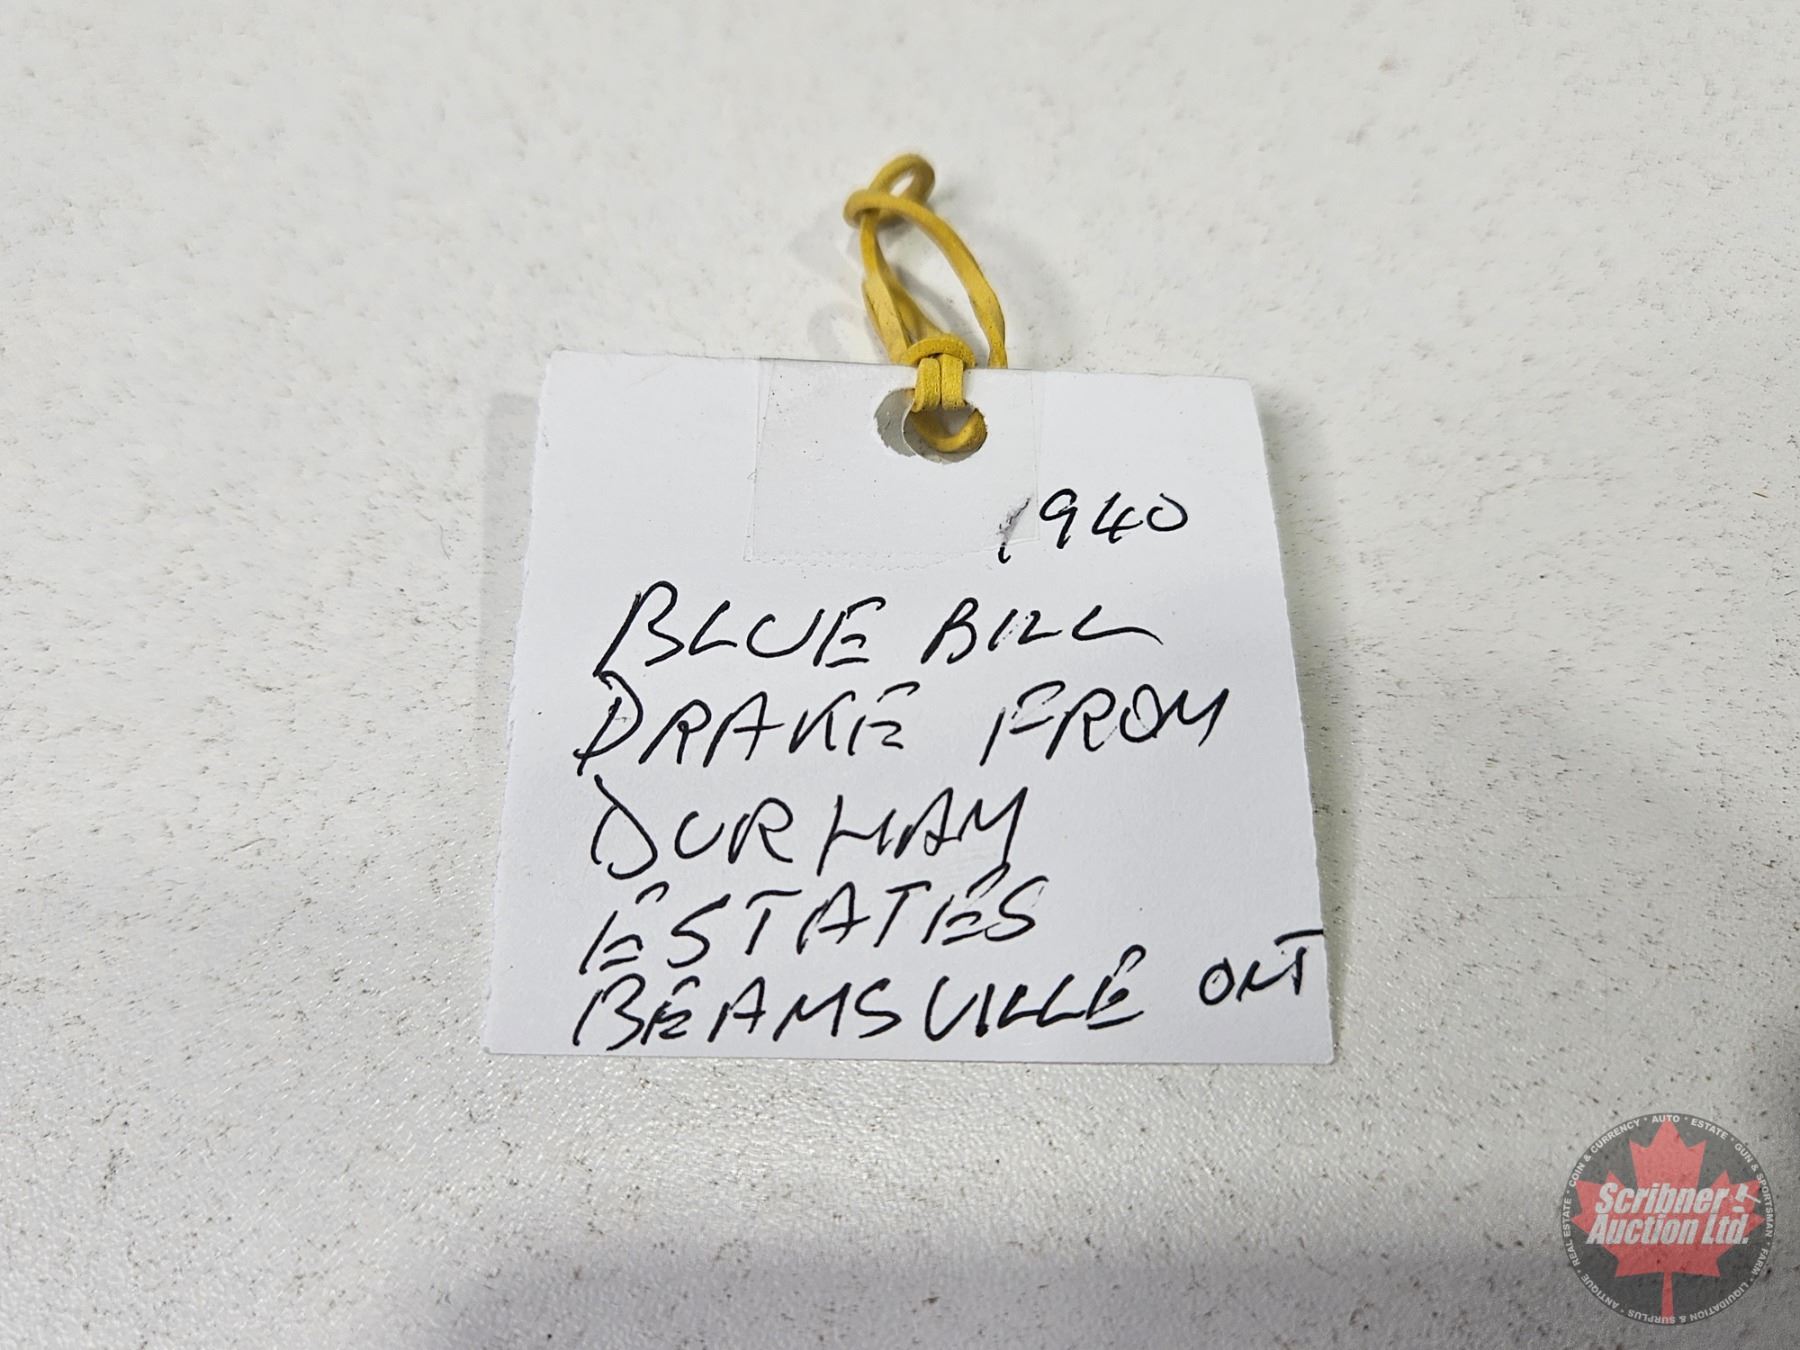 1940
BLUE BILL
DRAKE FROM
DURHAM
ESTATES
BEAMSVILLE ONT
COIN & CURRENCY * AUTO * ESTATE * GUN & SPORTSMAN * FARM * LIQUIDATION & SURPLUS * ANTIQUE * REAL ESTATE *
Scribner
Auction Ltd.